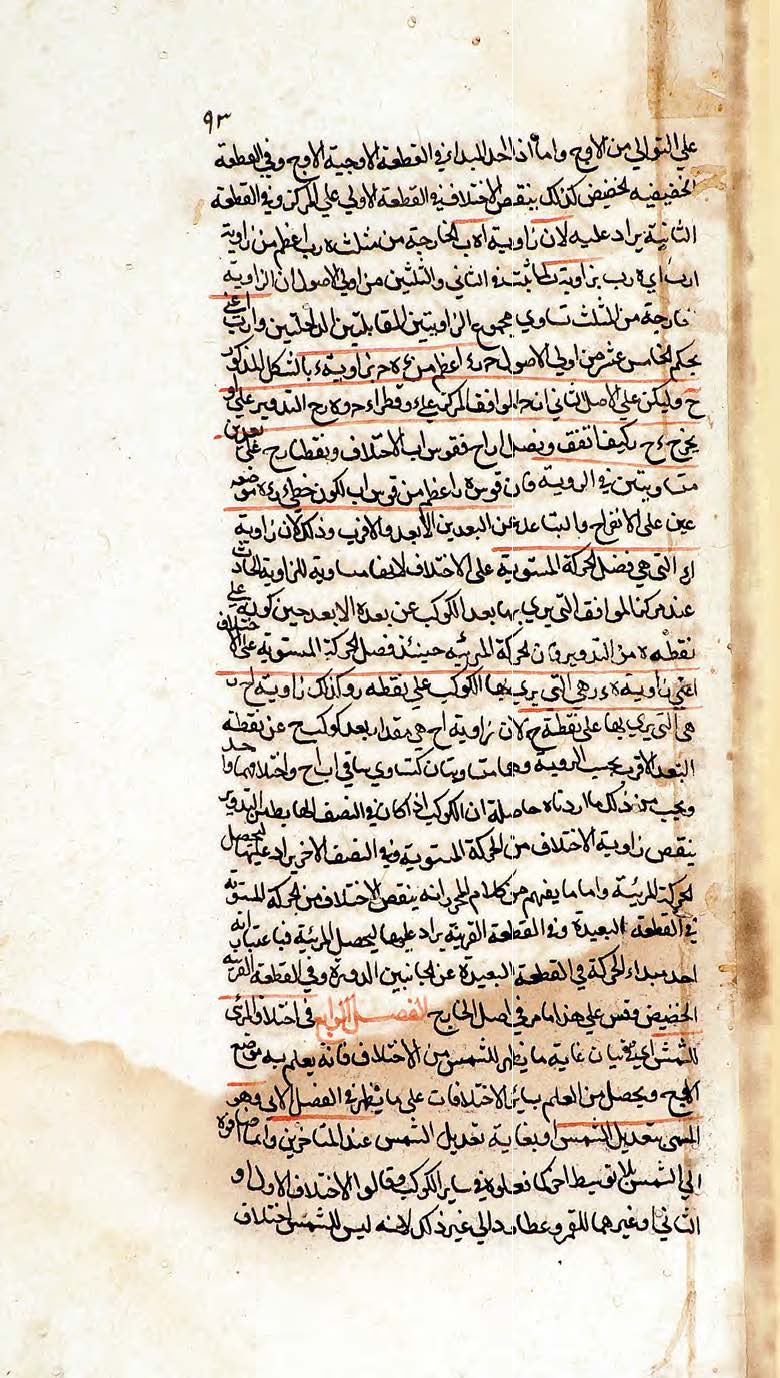 ٩٣
على التوالي من الاوج واما اذا اخذ المبداء في القطعة الاوجية الاوج وفي القطعة
الحضيضيه الحضيض كذلك ينقص الاختلاف في القطعة الاولى على المركز وفي القطعة
الثانية يراد عليه لان زاوية اه ب الخارجة من مثلث ه رب اعظم من زاوية
ارب اي ه رب بزاوية الثاني والثلثين من اولى الاصول ان الزاوية
خارجة من المثلث تساوي مجموع الزاويتين المقابلتين الداخلتين وارب اعني
بحكم الخامس عشر من اولى الاصول اعظم من بزاوية ء بالشكل المذكور
ح وليكن على الاصل الثاني الموافق المركز على ء وقطر اء ح و ه رح التدوير على او
يخرج كيف اتفق ونصل فقوس اب الاختلاف ونقطتا رح على بعدين
متساويتين في الروية فان قوس ه را اعظم من قوس اب لكون خطي موضعه
عين على الانفراج والتباعد عن البعدين الابعد والاقرب وذلك لان زاوية
اء التي هي فضل الحركة المستوية على الاختلاف لانها مساوية للزاوية الحادثة
عند مركز الموافق التي يرى بها بعد الكوكب عن بعده الابعد حين كونه على
نقطه ه من التدوير فان الحركة المرئيه حينئذ فصل الحركة المستويه على الاختلاف
اعني زاوية ه ء ر هي التي يرى بها الكوكب على نقطه ر وكذلك زاوية اح ر
هي التي يرى بها على نقطة ح لان زاوية اح هي مقدار بعد كوكب ح عن نقطة
البعد الاقرب بحسب الروية وهما متساويتان كتساوي ساقي اب اح واختلافهما واحد
ويجب من ذلك ما اردناه حاصلة ان الكوكب اذا كان في النصف الهابط من التدوير
ينقص زاوية الاختلاف من الحركة المستوية وفي النصف الاخر يراد عليها ليحصل
الحركة المرئية واما ما يفهم من كلام المحرر انه ينقص الاختلاف من الحركة المستوية
في القطعة البعيدة وفي القطعة القريبة يراد عليها ليحصل المرئية فباعتبار انه
احد مبداء الحركة في القطعة البعيدة عن الجانبين الدورة وفي القطعة القريبة
الحضيض وقس على هذا ما مر في اصل الخارج الفصل الرابع في اختلاف المرئي
للشمس اي في بيان غاية ما يظهر للشمس من الاختلاف فانه يعلم به موضع
الاوج ويحصل من العلم بسائر الاختلافات على ما يظهر في الفصل الاتي وهو
المسمى بتعديل الشمس او بغاية تعديل الشمس عند المتاخرين وانما اضافوه
الى الشمس بلا توسيط اخر كما فعلوه في ساير الكوكب وقالوا الاختلاف الاول او
الثاني او غيرهما للقمر وعطارد الى غير ذلك لانه ليس للشمس اختلاف